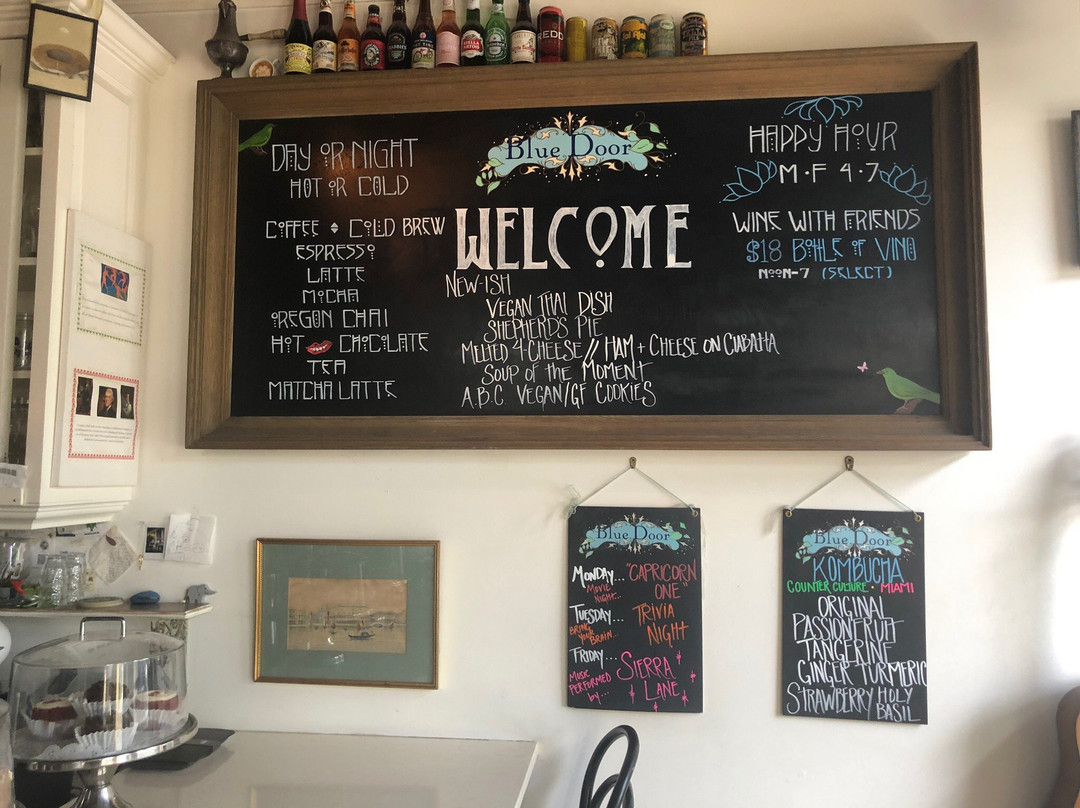 DAY OR NIGHT
HOT OR COLD
COFFEE COLD BREW
ESPRESSO
LATTE
MOCHA
OREGON CHAI
HOT CHOCOLATE
TEA
MATCHA LATTE
Blue Door
WELCOME
NEW-ISH
VEGAN THAI DISH
SHEPHERD'S PIE
MELTED 4-CHEESE // HAM + CHEESE ON CIABATTA
SOUP OF THE MOMENT
A.B.C. VEGAN/GF COOKIES
HAPPY HOUR
M-F 4-7
WINE WITH FRIENDS
$18 BOTTLE OF VINO
NOON-7 (SELECT)
Blue Door
MONDAY... "CAPRICORN
MOVIE ONE"
NIGHT...
TUESDAY... TRIVIA
BRING NIGHT
YOUR
BRAIN...
FRIDAY...
MUSIC SIERRA
PERFORMED LANE
by...
Blue Door
KOMBUCHA
COUNTER CULTURE · MIAMI
ORIGINAL
PASSIONFRUIT
TANGERINE
GINGER TURMERIC
STRAWBERRY HOLY
BASIL
REDD